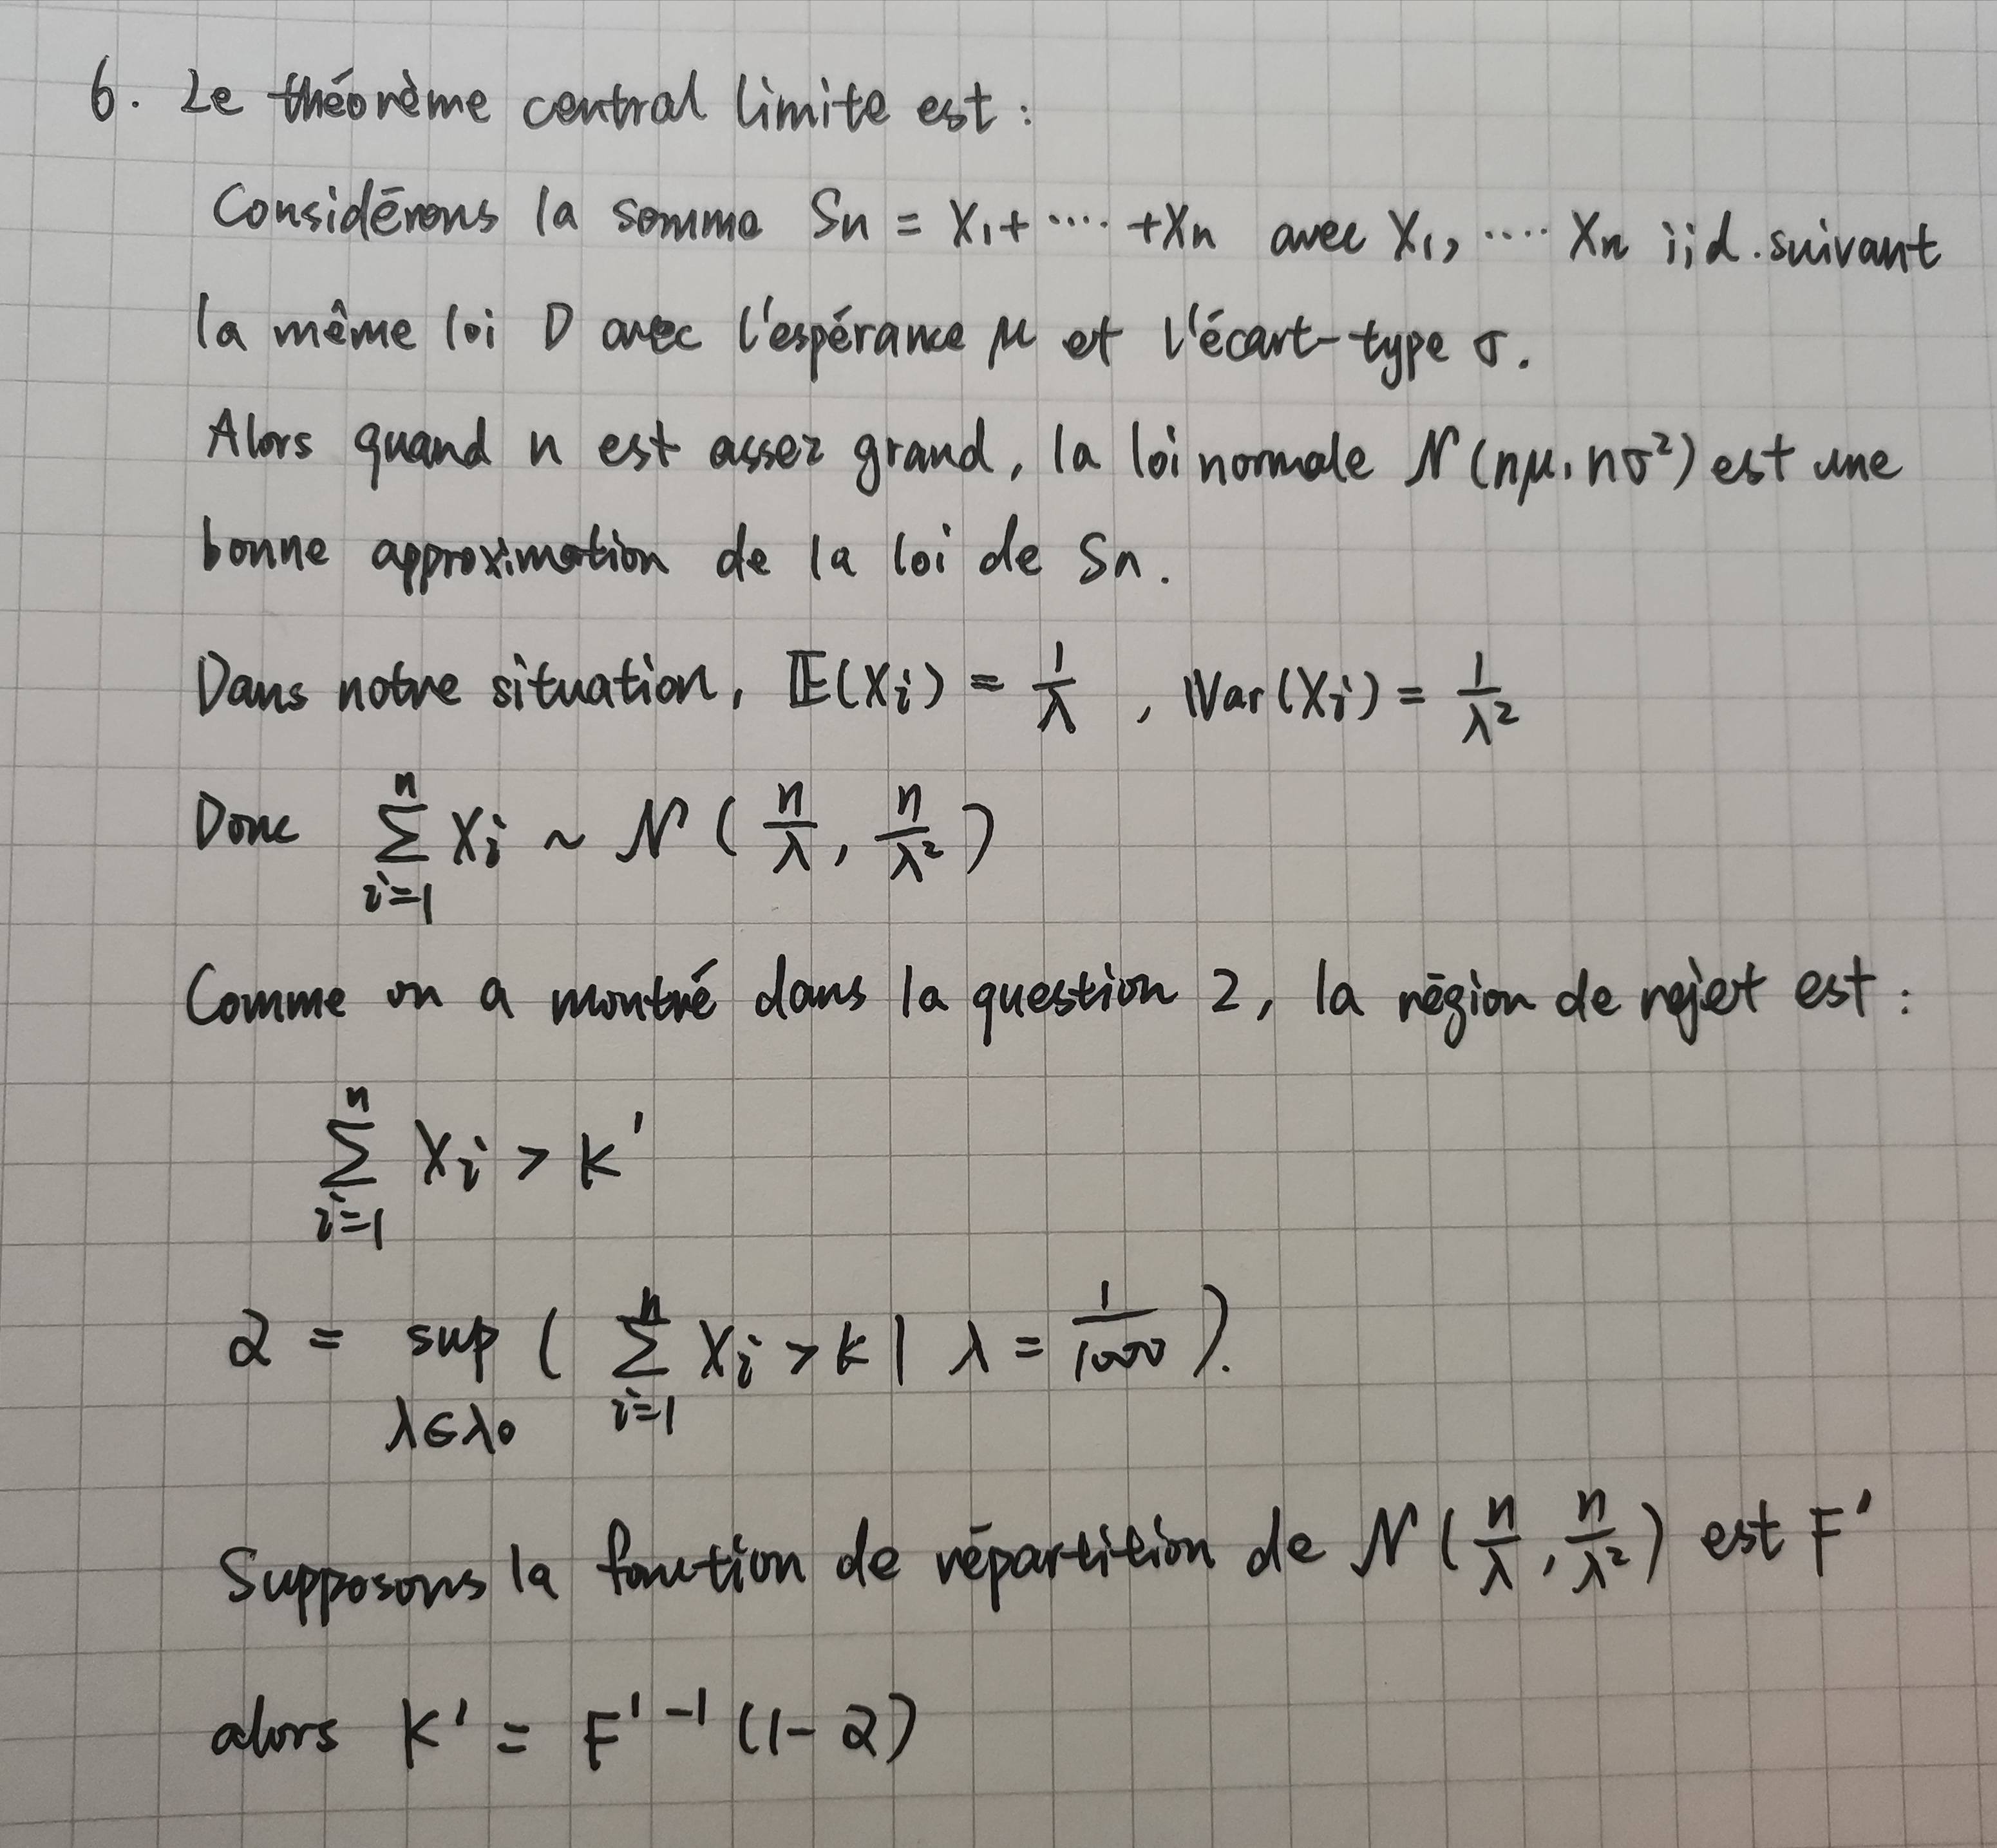 6. Le théorème central limite est :
Considérons la somme Sn = X₁+ ····· +Xn avec X₁, ···· Xn i.i.d. suivant
la même loi D avec l'espérance μ et l'écart-type σ.
Alors quand n est assez grand, la loi normale N(nμ, nσ²) est une
bonne approximation de la loi de Sn.
Dans notre situation, 𝔼(Xi) = 1/λ , Var(Xi) = 1/λ²
Donc ∑_{i=1}^{n} Xi ~ N(n/λ, n/λ²)
Comme on a montré dans la question 2, la région de rejet est :
∑_{i=1}^{n} Xi > K'
α = sup_{λ∈λ₀} ( ∑_{i=1}^{n} Xi > k | λ = 1/1000 ).
Supposons la fonction de répartition de N(n/λ, n/λ²) est F'
alors K' = F'⁻¹(1-α)